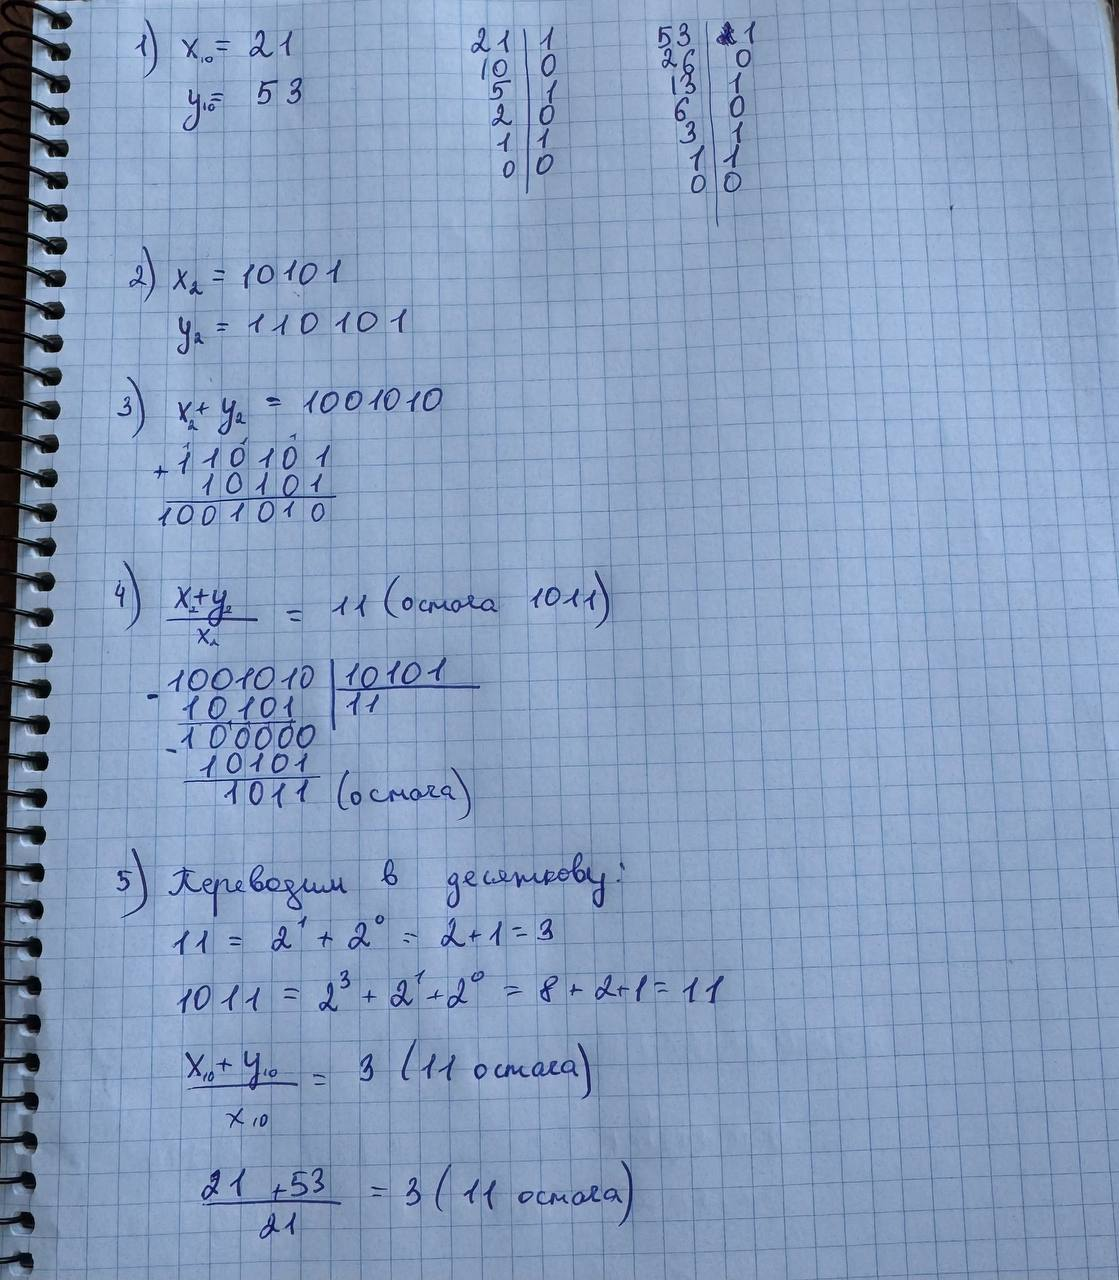 1) x₁₀ = 21
y₁₀ = 53
21 | 1
10 | 0
5 | 1
2 | 0
1 | 1
0 | 0
53 | 1
26 | 0
13 | 1
6 | 0
3 | 1
1 | 1
0 | 0
2) x₂ = 10101
y₂ = 110101
3) x₂ + y₂ = 1001010
+ 110101
10101
1001010
4) x₂+y₂ / x₂ = 11 (остача 1011)
- 1001010 | 10101
10101 | 11
- 100000
10101
1011 (остача)
5) Переводим в десяткову:
11 = 2¹ + 2⁰ = 2+1 = 3
1011 = 2³ + 2¹ + 2⁰ = 8 + 2+1 = 11
x₁₀ + y₁₀ / x₁₀ = 3 (11 остача)
21 + 53 / 21 = 3 (11 остача)